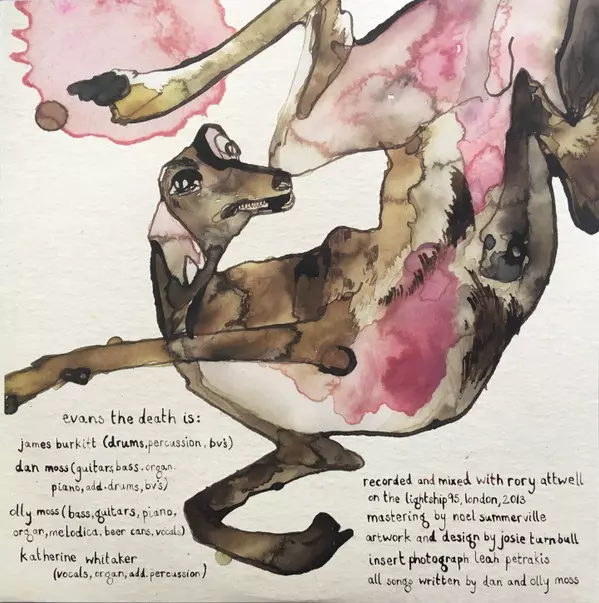 evans the death is:
james burkitt (drums, percussion, bv's)
dan moss (guitars, bass, organ.
piano, add. drums, bv's)
olly moss (bass, guitars, piano,
organ, melodica, beer cans, vocals)
katherine whitaker
(vocals, organ, add. percussion)
recorded and mixed with rory attwell
on the lightship95, london, 2013
mastering by noel summerville
artwork and design by josie turnbull
insert photograph leah petrakis
all songs written by dan and olly moss